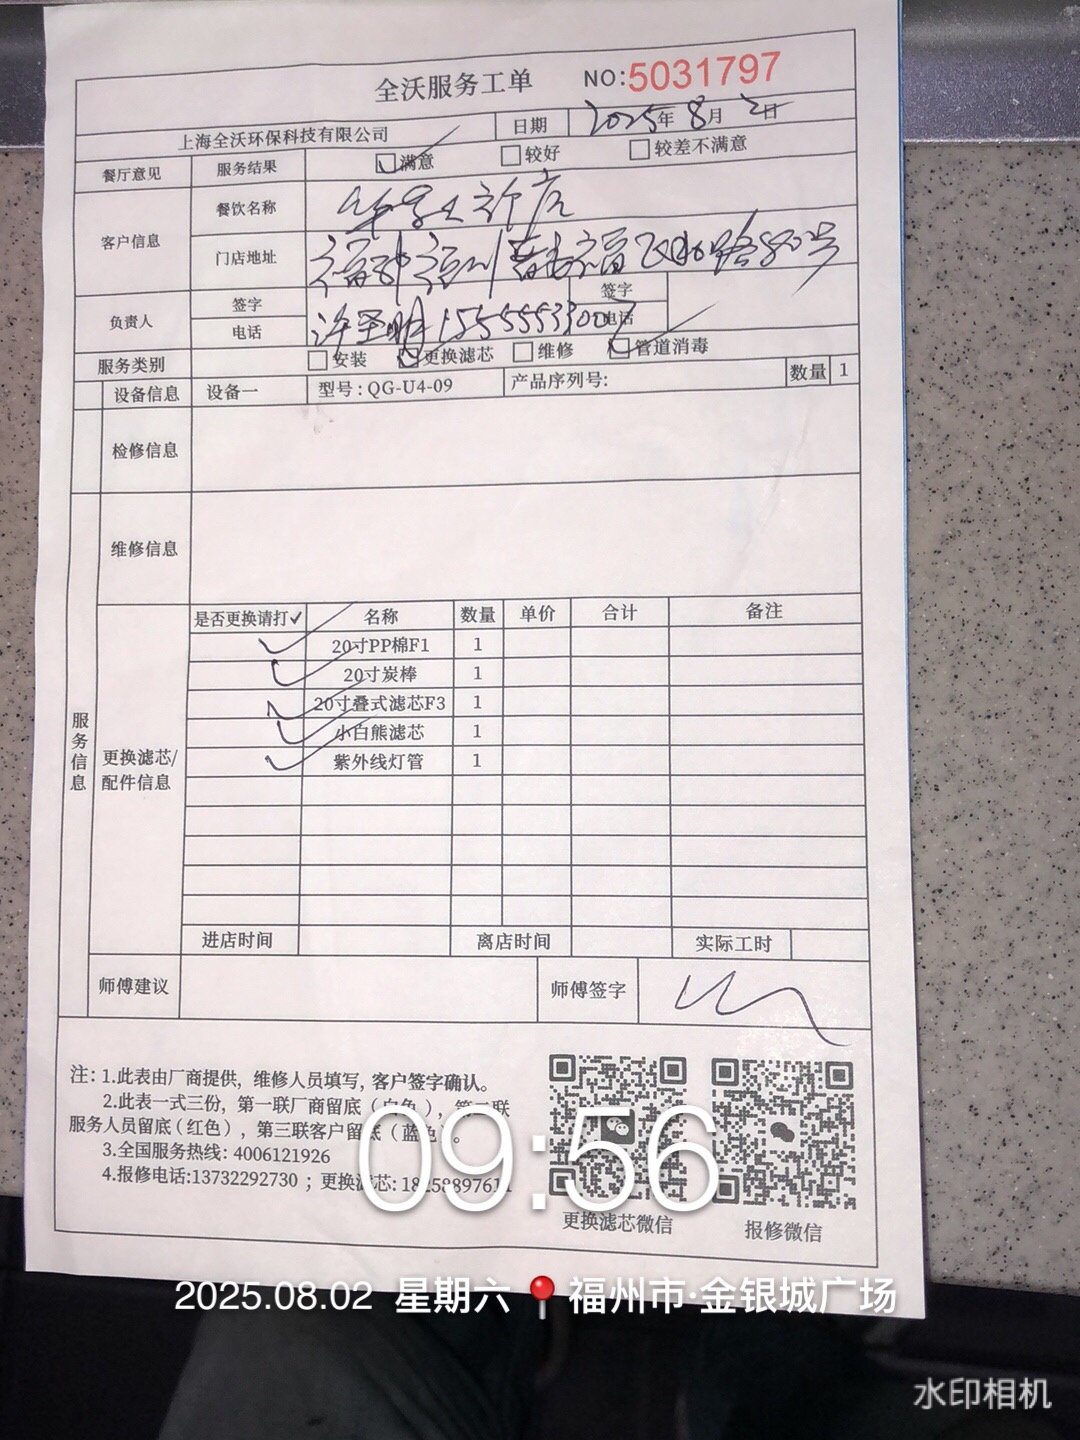 全沃服务工单 NO:5031797
上海全沃环保科技有限公司 日期 2025年8月2日
餐厅意见 服务结果 满意 较好 较差不满意
客户信息 餐饮名称
门店地址
负责人 签字 签字
电话 电话
服务类别 安装 更换滤芯 维修 管道消毒
设备信息 设备一 型号:QG-U4-09 产品序列号: 数量 1
检修信息
维修信息
服务信息
更换滤芯/配件信息
是否更换请打✓ 名称 数量 单价 合计 备注
✓ 20寸PP棉F1 1
✓ 20寸炭棒 1
✓ 20寸叠式滤芯F3 1
✓ 小白熊滤芯 1
✓ 紫外线灯管 1
进店时间 离店时间 实际工时
师傅建议 师傅签字
注: 1.此表由厂商提供, 维修人员填写, 客户签字确认。
2.此表一式三份, 第一联厂商留底(白色), 第二联
服务人员留底(红色), 第三联客户留底(蓝色)。
3.全国服务热线: 4006121926
4.报修电话:13732292730 ; 更换滤芯:
更换滤芯微信 报修微信
09:56
2025.08.02 星期六 福州市·金银城广场
水印相机